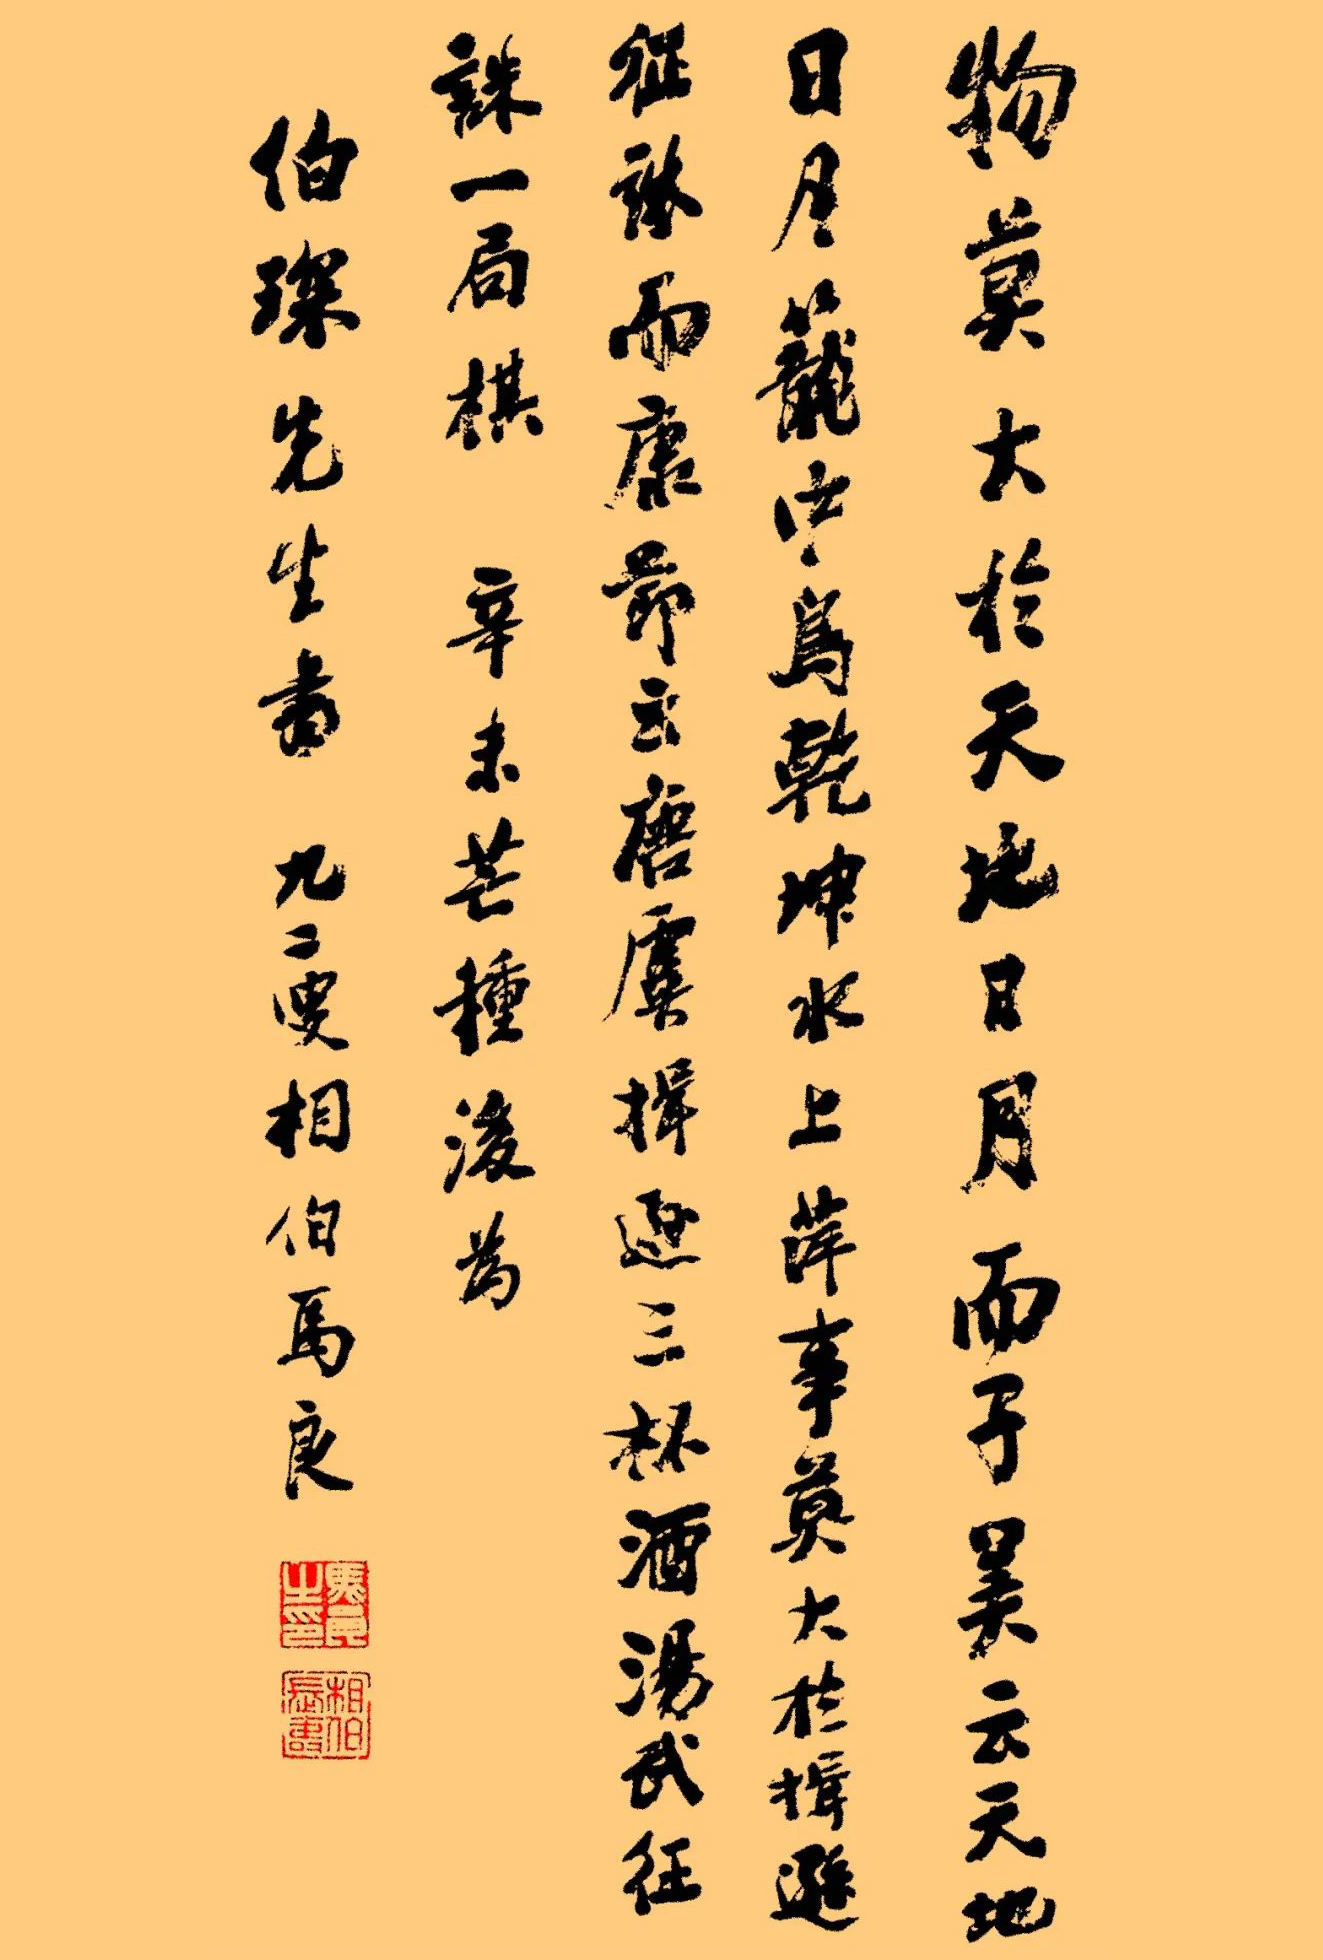 物莫大於天地日月而子美云天地
日月籠中鳥乾坤水上萍事莫大於揖遜
征誅而康節云唐虞揖遜三杯酒湯武征
誅一局棋 辛未芒種後為
伯琛先生書 九二叟相伯馬良
馬良之印
相伯長